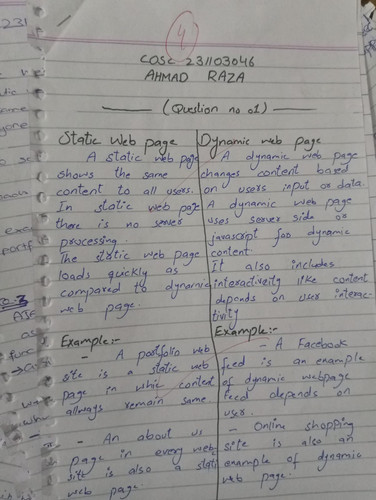 4
COSC 231103046
AHMAD RAZA
(Question no 01)
Static Web page
A static web page
shows the same
content to all users.
In static web page
there is no server
processing.
The static web page
loads quickly as
compared to dynamic
web page.
Example:-
- A portfolio web
site is a static web
page in whic conted
allways remain same
- An about us
page in every web
site is also a static
web page.
Dynamic web page
A dynamic web page
changes content based
on users input or data.
A dynamic web page
uses server side or
javascript foo dynamic
content
It also includes
interactivity like content
depends on user interac-
tivity
Example:-
- A Facebook
feed is an enample
of dynamic webpage
feed depends on
user.
- Online shopping
site is also an
enample of dynamic
web page.
231